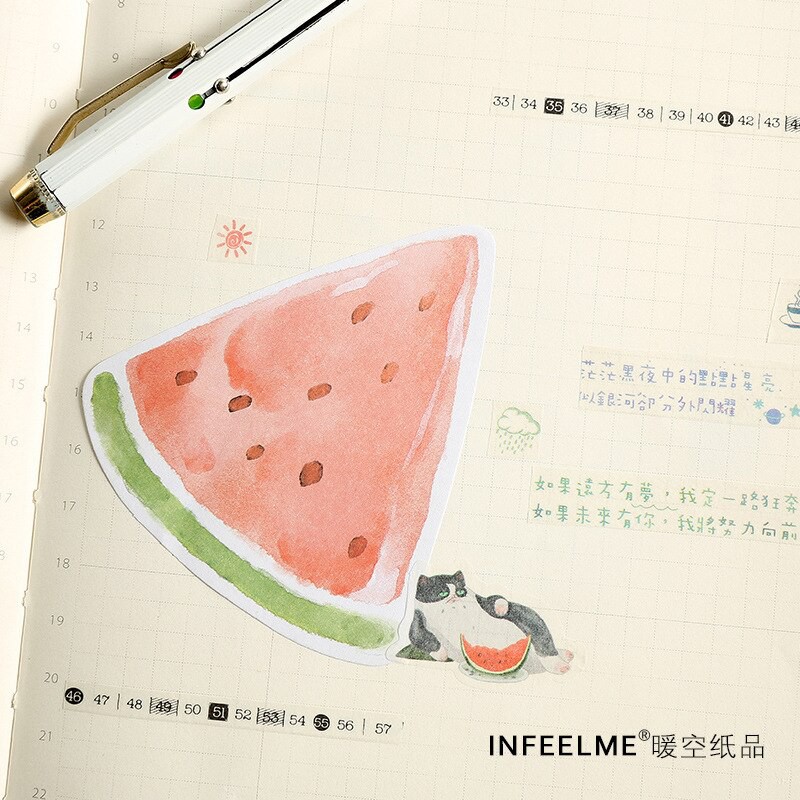 8
9
10
33 34 35 36 37 38 39 40 41 42 43
12
13
14
15
16
17
18
19
20
21
22
茫茫黑夜中的點點星亮
似銀河卻分外閃耀
如果遠方有夢，我定一路狂奔
如果未來有你，我將努力向前
46 47 48 49 50 51 52 53 54 55 56 57
INFEELME®暖空纸品